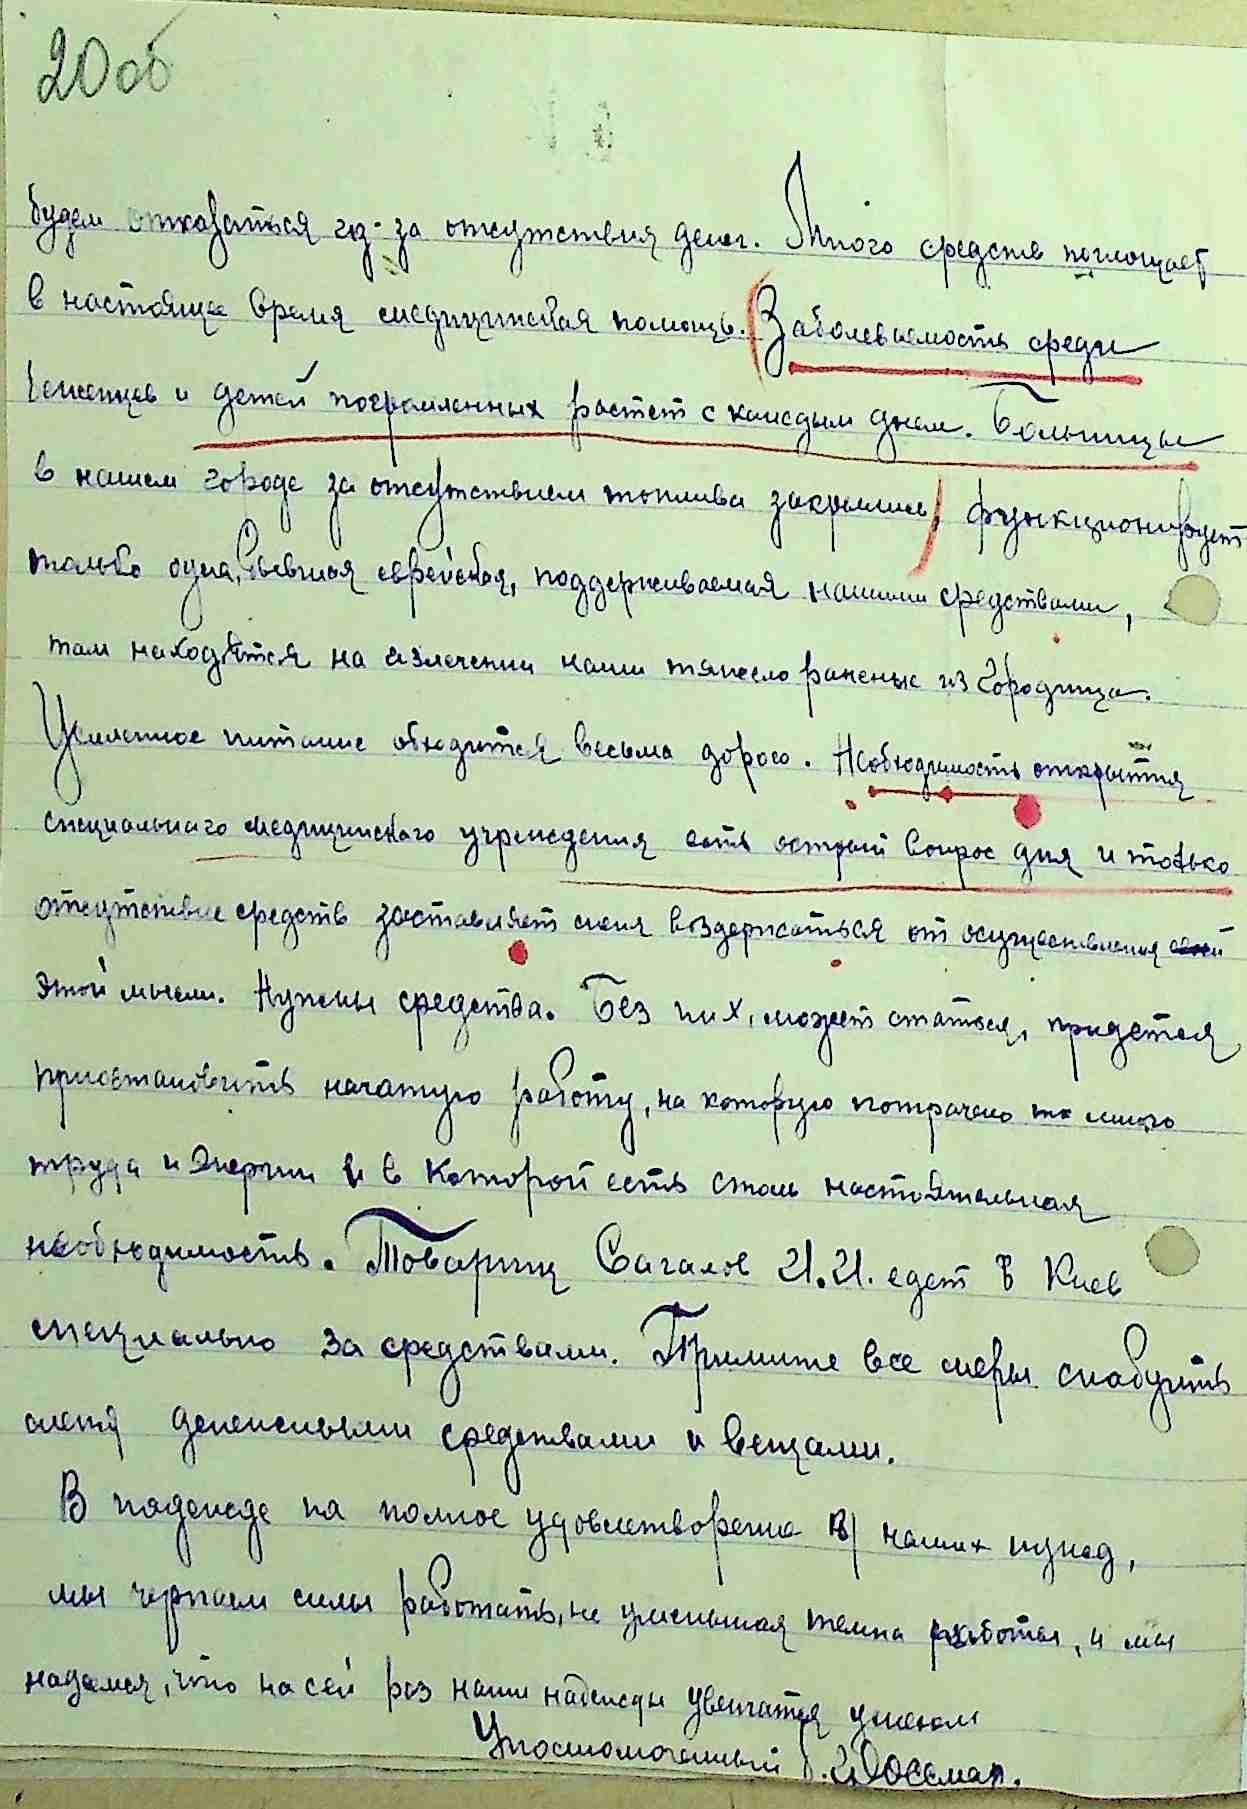 20об
будем отказаться из-за отсутствия денег. Много средств поглощает
в настоящее время медицинская помощь. (Заболеваемость среди
беженцев и детей погромленных растет с каждым днем. Больницы
в нашем городе за отсутствием топлива закрылись) функционирует
только одна, бывшая еврейская, поддерживаемая нашими средствами,
там находятся на излечении наши тяжело раненые из Городища.
Усиленное питание обходится весьма дорого. Необходимость открытия
специального медицинского учреждения есть острый вопрос дня и только
отсутствие средств заставляет меня воздержаться от осуществления
этой мысли. Нужны средства. Без них, может статься, придется
приостановить начатую работу, на которую потрачено так много
труда и энергии и в которой есть столь настоятельная
необходимость. Товарищ Сагалов И.И. едет в Киев
специально за средствами. Примите все меры снабдить
меня денежными средствами и вещами.
В надежде на полное удовлетворение наших нужд,
мы черпаем силы работать, не уменьшая темпа работы, и мы
надеемся, что на сей раз наши надежды увенчатся успехом
Уполномоченный